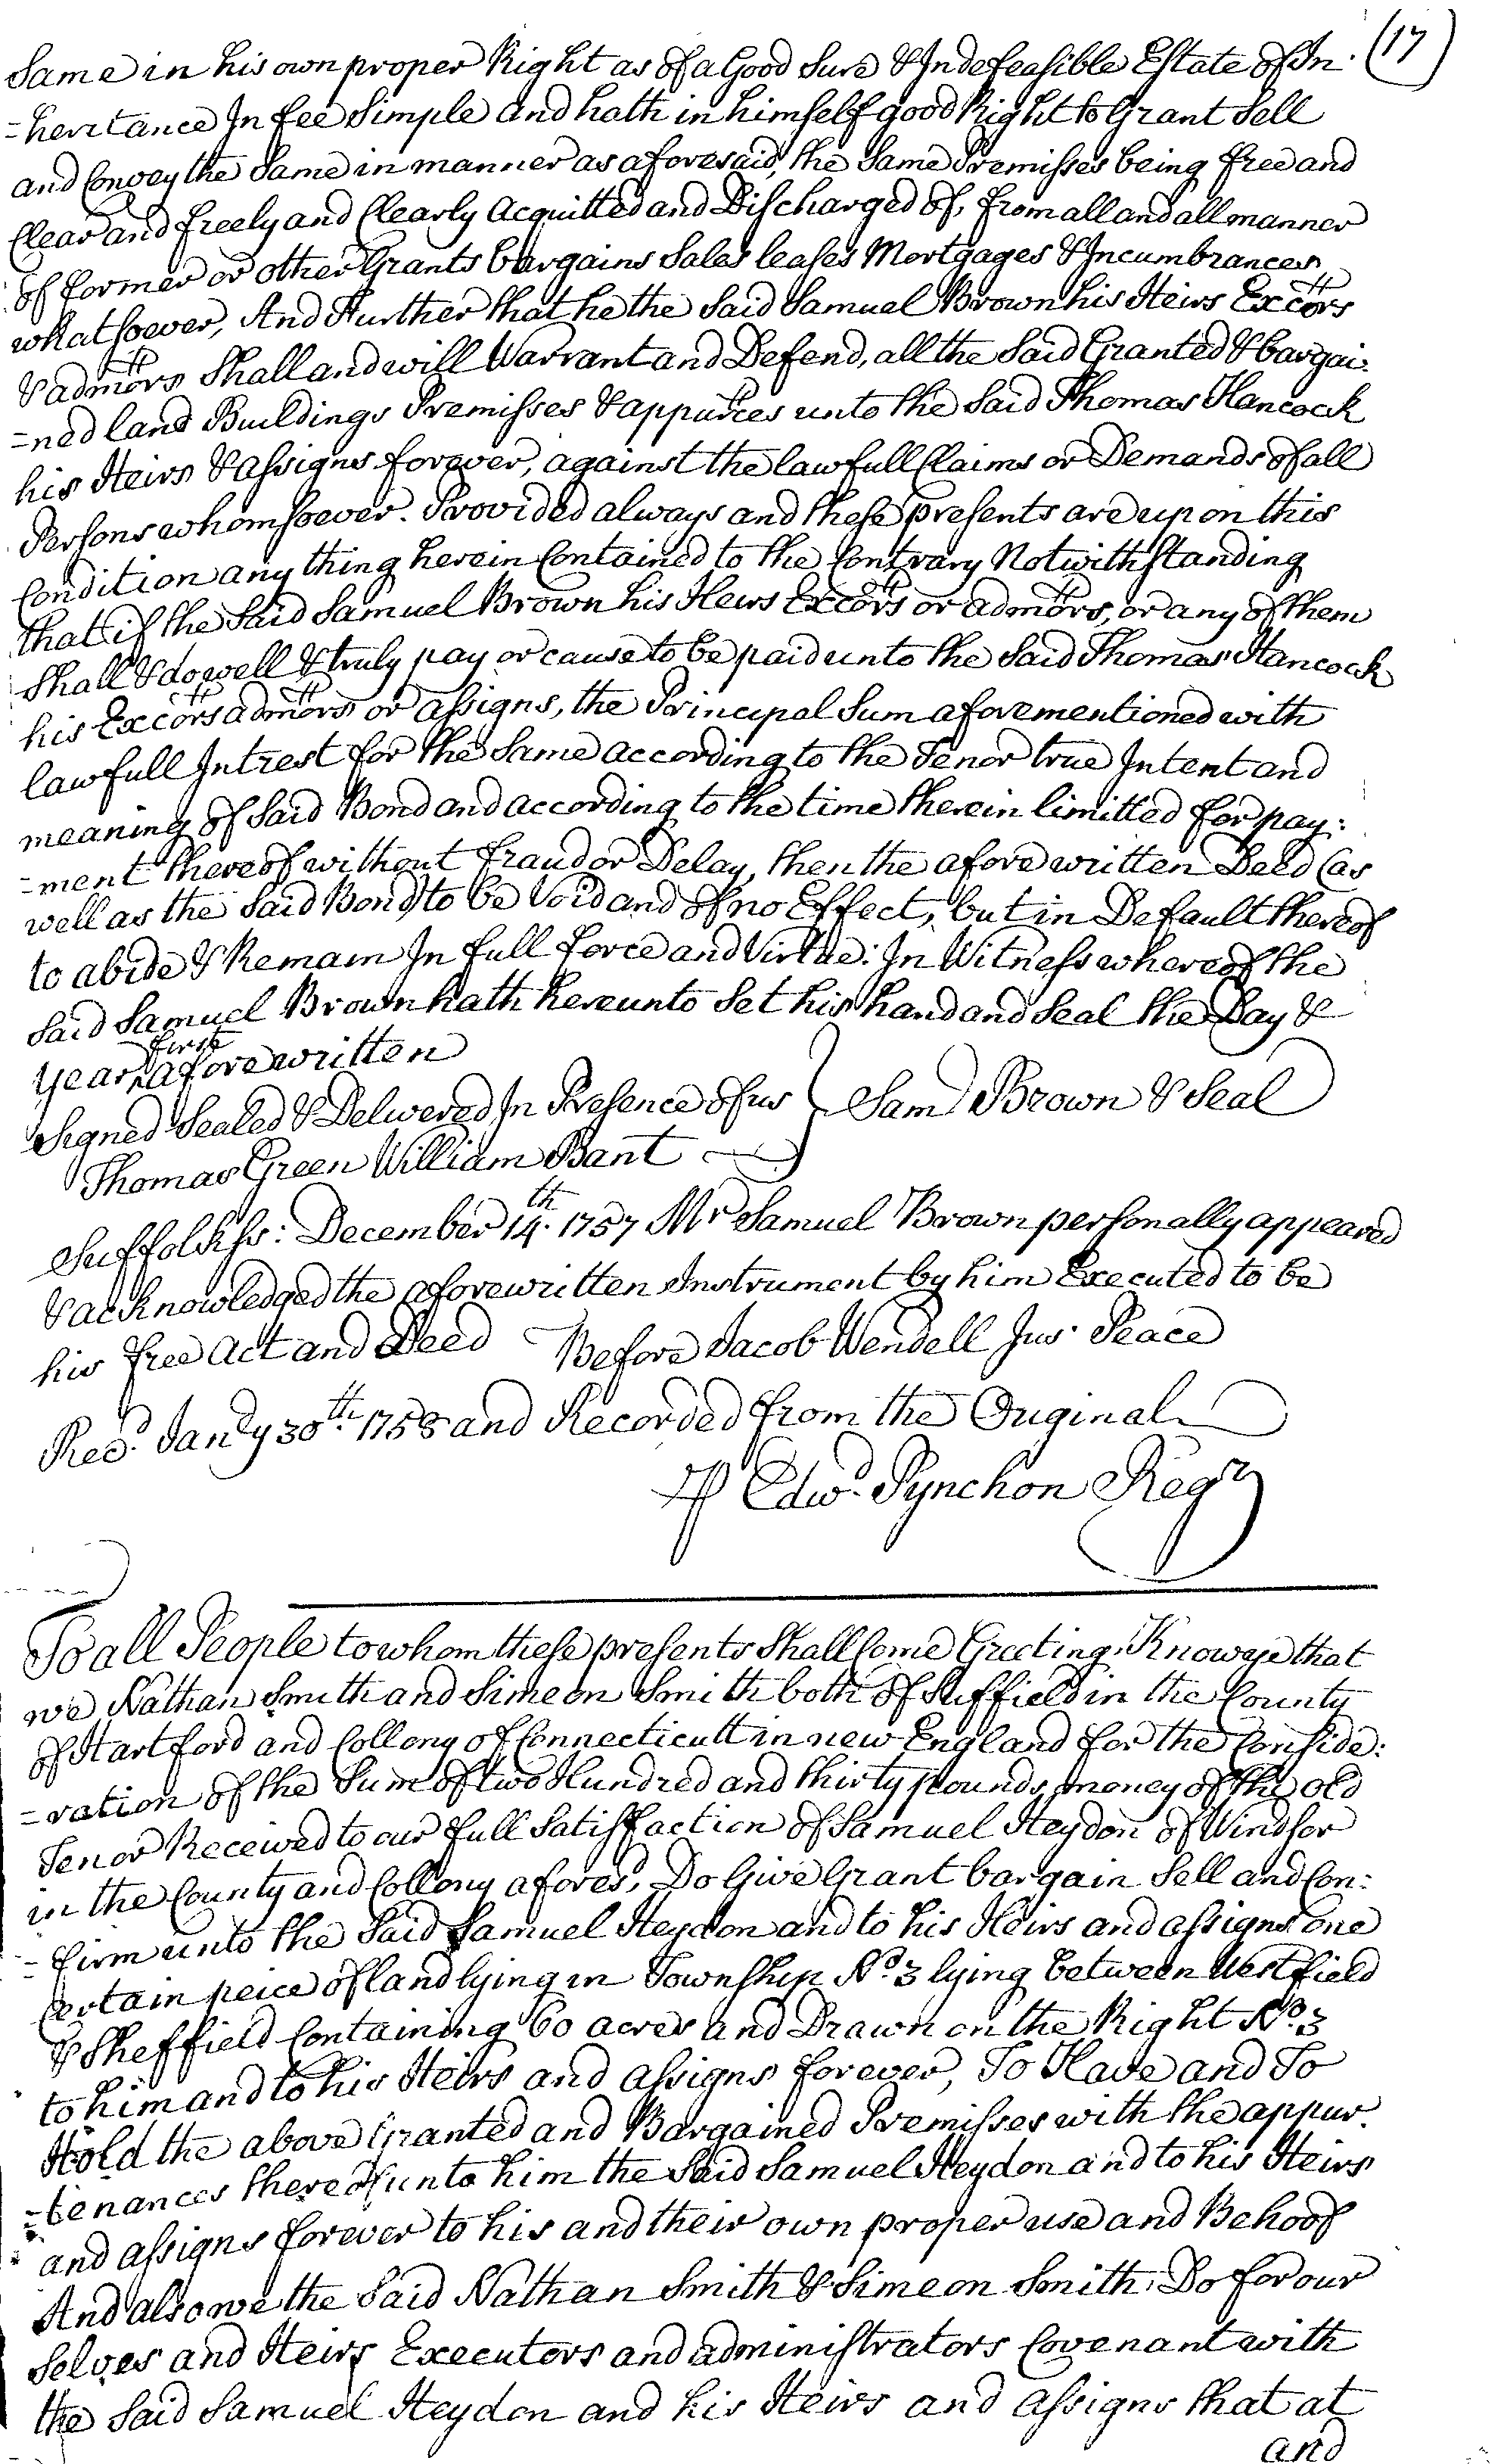 (17)
Same in his own proper Right as of a Good Sure & Indefeasible Estate of In-
=heritance In fee Simple and hath in himself good Right to Grant Sell
and Convey the Same in manner as aforesaid, the Same Premisses being free and
Clear and freely and Clearly Acquitted and Discharged of, from all and all manner
of former or other Grants bargains Sales leases Mortgages & Incumbrances
whatsoever, And Further that he the Said Samuel Brown his Heirs Excors
& admors Shall and will Warrant and Defend, all the Said Granted & bargai-
=ned land Buildings Premisses & appurces unto the Said Thomas Hancock
his Heirs & Assigns forever, against the lawfull Claims or Demands of all
Persons whomsoever. Provided always and these presents are upon this
Condition any thing herein Contained to the Contrary Notwithstanding
that if the Said Samuel Brown his Heirs Excors or admors, or any of them
Shall & do well & truly pay or cause to be paid unto the Said Thomas Hancock
his Excors admors or assigns, the Principal Sum aforementioned with
lawfull Intrest for the Same according to the Tenor true Intent and
meaning of Said Bond and according to the time therein limitted for pay:
=ment thereof without fraud or Delay, then the afore written Deed (as
well as the Said Bond) to be Void and of no Effect, but in Default thereof
to abide & Remain In full force and Virtue: In Witness whereof the
Said Samuel Brown hath hereunto Set his hand and Seal the Day &
year first aforewritten
Signed Sealed & Delivered In Presence of us } Sam Brown & Seal
Thomas Green William Bant
Suffolk ss: December 14th. 1757 Mr Samuel Brown personally appeared
& acknowledged the aforewritten Instrument by him Executed to be
his free Act and Deed Before Jacob Wendell Jus. Peace
Recd. Jandy 30th. 1758 and Recorded from the Original
P Edwd. Pynchon Regr
To all People to whom these presents Shall Come Greeting. Know ye that
we Nathan Smith and Simeon Smith both of Suffield in the County
of Hartford and Collony of Connecticutt in new England for the Conside:
=ration of the Sum of two Hundred and thirty pounds money of the old
Tenor Received to our full Satisfaction of Samuel Heydon of Windsor
in the County and Collony afores,d Do Give Grant bargain Sell and Con:
=firm unto the Said Samuel Heydon and to his Heirs and assigns one
Certain peice of land lying in Township No. 3 lying between Westfield
& Sheffield Containing 60 acres and Drawn on the Right No. 3
to him and to his Heirs and assigns forever, To Have and To
Hold the above Granted and Bargained Premisses with the appur-
=tenances thereof unto him the Said Samuel Heydon and to his Heirs
and assigns forever to his and their own proper use and Behoof
And also we the Said Nathan Smith & Simeon Smith, Do for our
Selves and Heirs Executors and administrators Covenant with
the Said Samuel Heydon and his Heirs and assigns that at
and